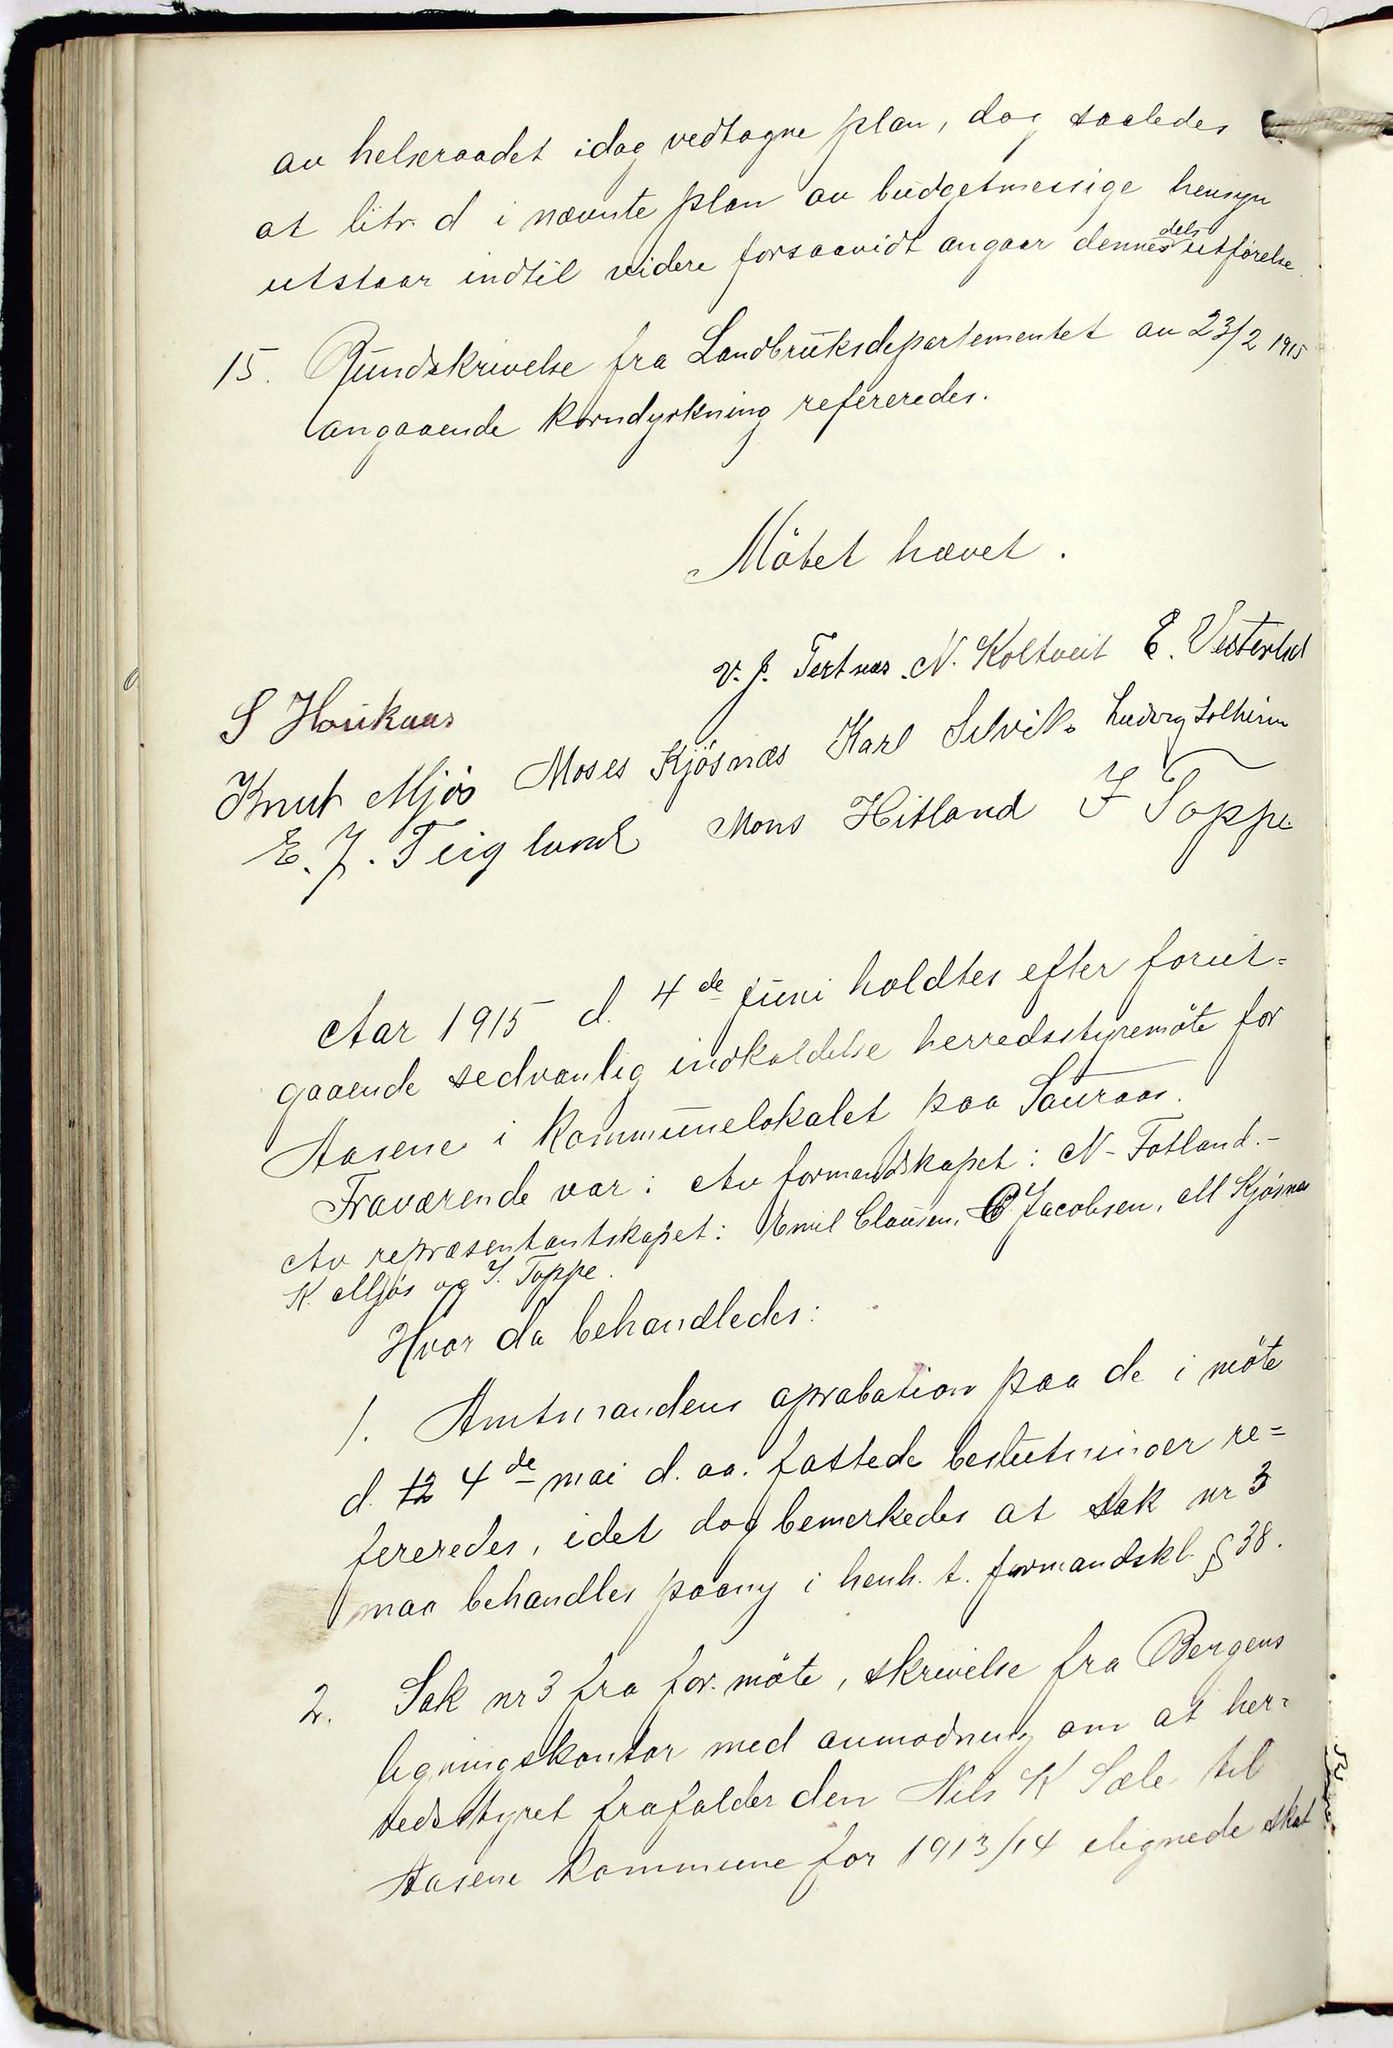 av helseraadet idag vedtagne plan, dog saaledes
at litr. d i nævnte plan av budgetmessige hensyn
utstaar indtil videre forsaavidt angaar dennes dels utførelse.
15. Rundskrivelse fra Landbruksdepartementet av 23/2 1915
angaaende korndyrkning refereredes.
Möbet hævet.
V. J. Tertnæs N. Koltveit E. Vesterlid
S Haukaas
Knut Mjøs Moses Kjösnæs Karl Selvik. Ludvig Solheim
E. J. Teiglund Mons Hitland J Toppe
Aar 1915 d. 4de juni holdtes efter forut=
gaaende sedvanlig indkaldelse herredsstyremöte for
Aasene i kommunelokalet paa Sauraas.
Fraværende var: Av formandskapet: N. Totland.-
Av repræsentantskapet: Emil Clausen, C Jacobsen, M Kjösnæs
K. Mjøs og J. Toppe.
Hvor da behandledes:
1. Amtmandens aprobation paa de i möte
d. 12 4de mai d. aa. fattede beslutninger re=
fereredes, idet dog bemerkedes at sak nr 3
maa behandles paany i henh. t. formandskl. § 38.
2. Sak nr 3 fra for. möte, skrivelse fra Bergens
ligningskontor med anmodning om at her=
redsstyret frafalder den Nils K Sæle til
Aasene kommune for 1913/14 ilignede skat